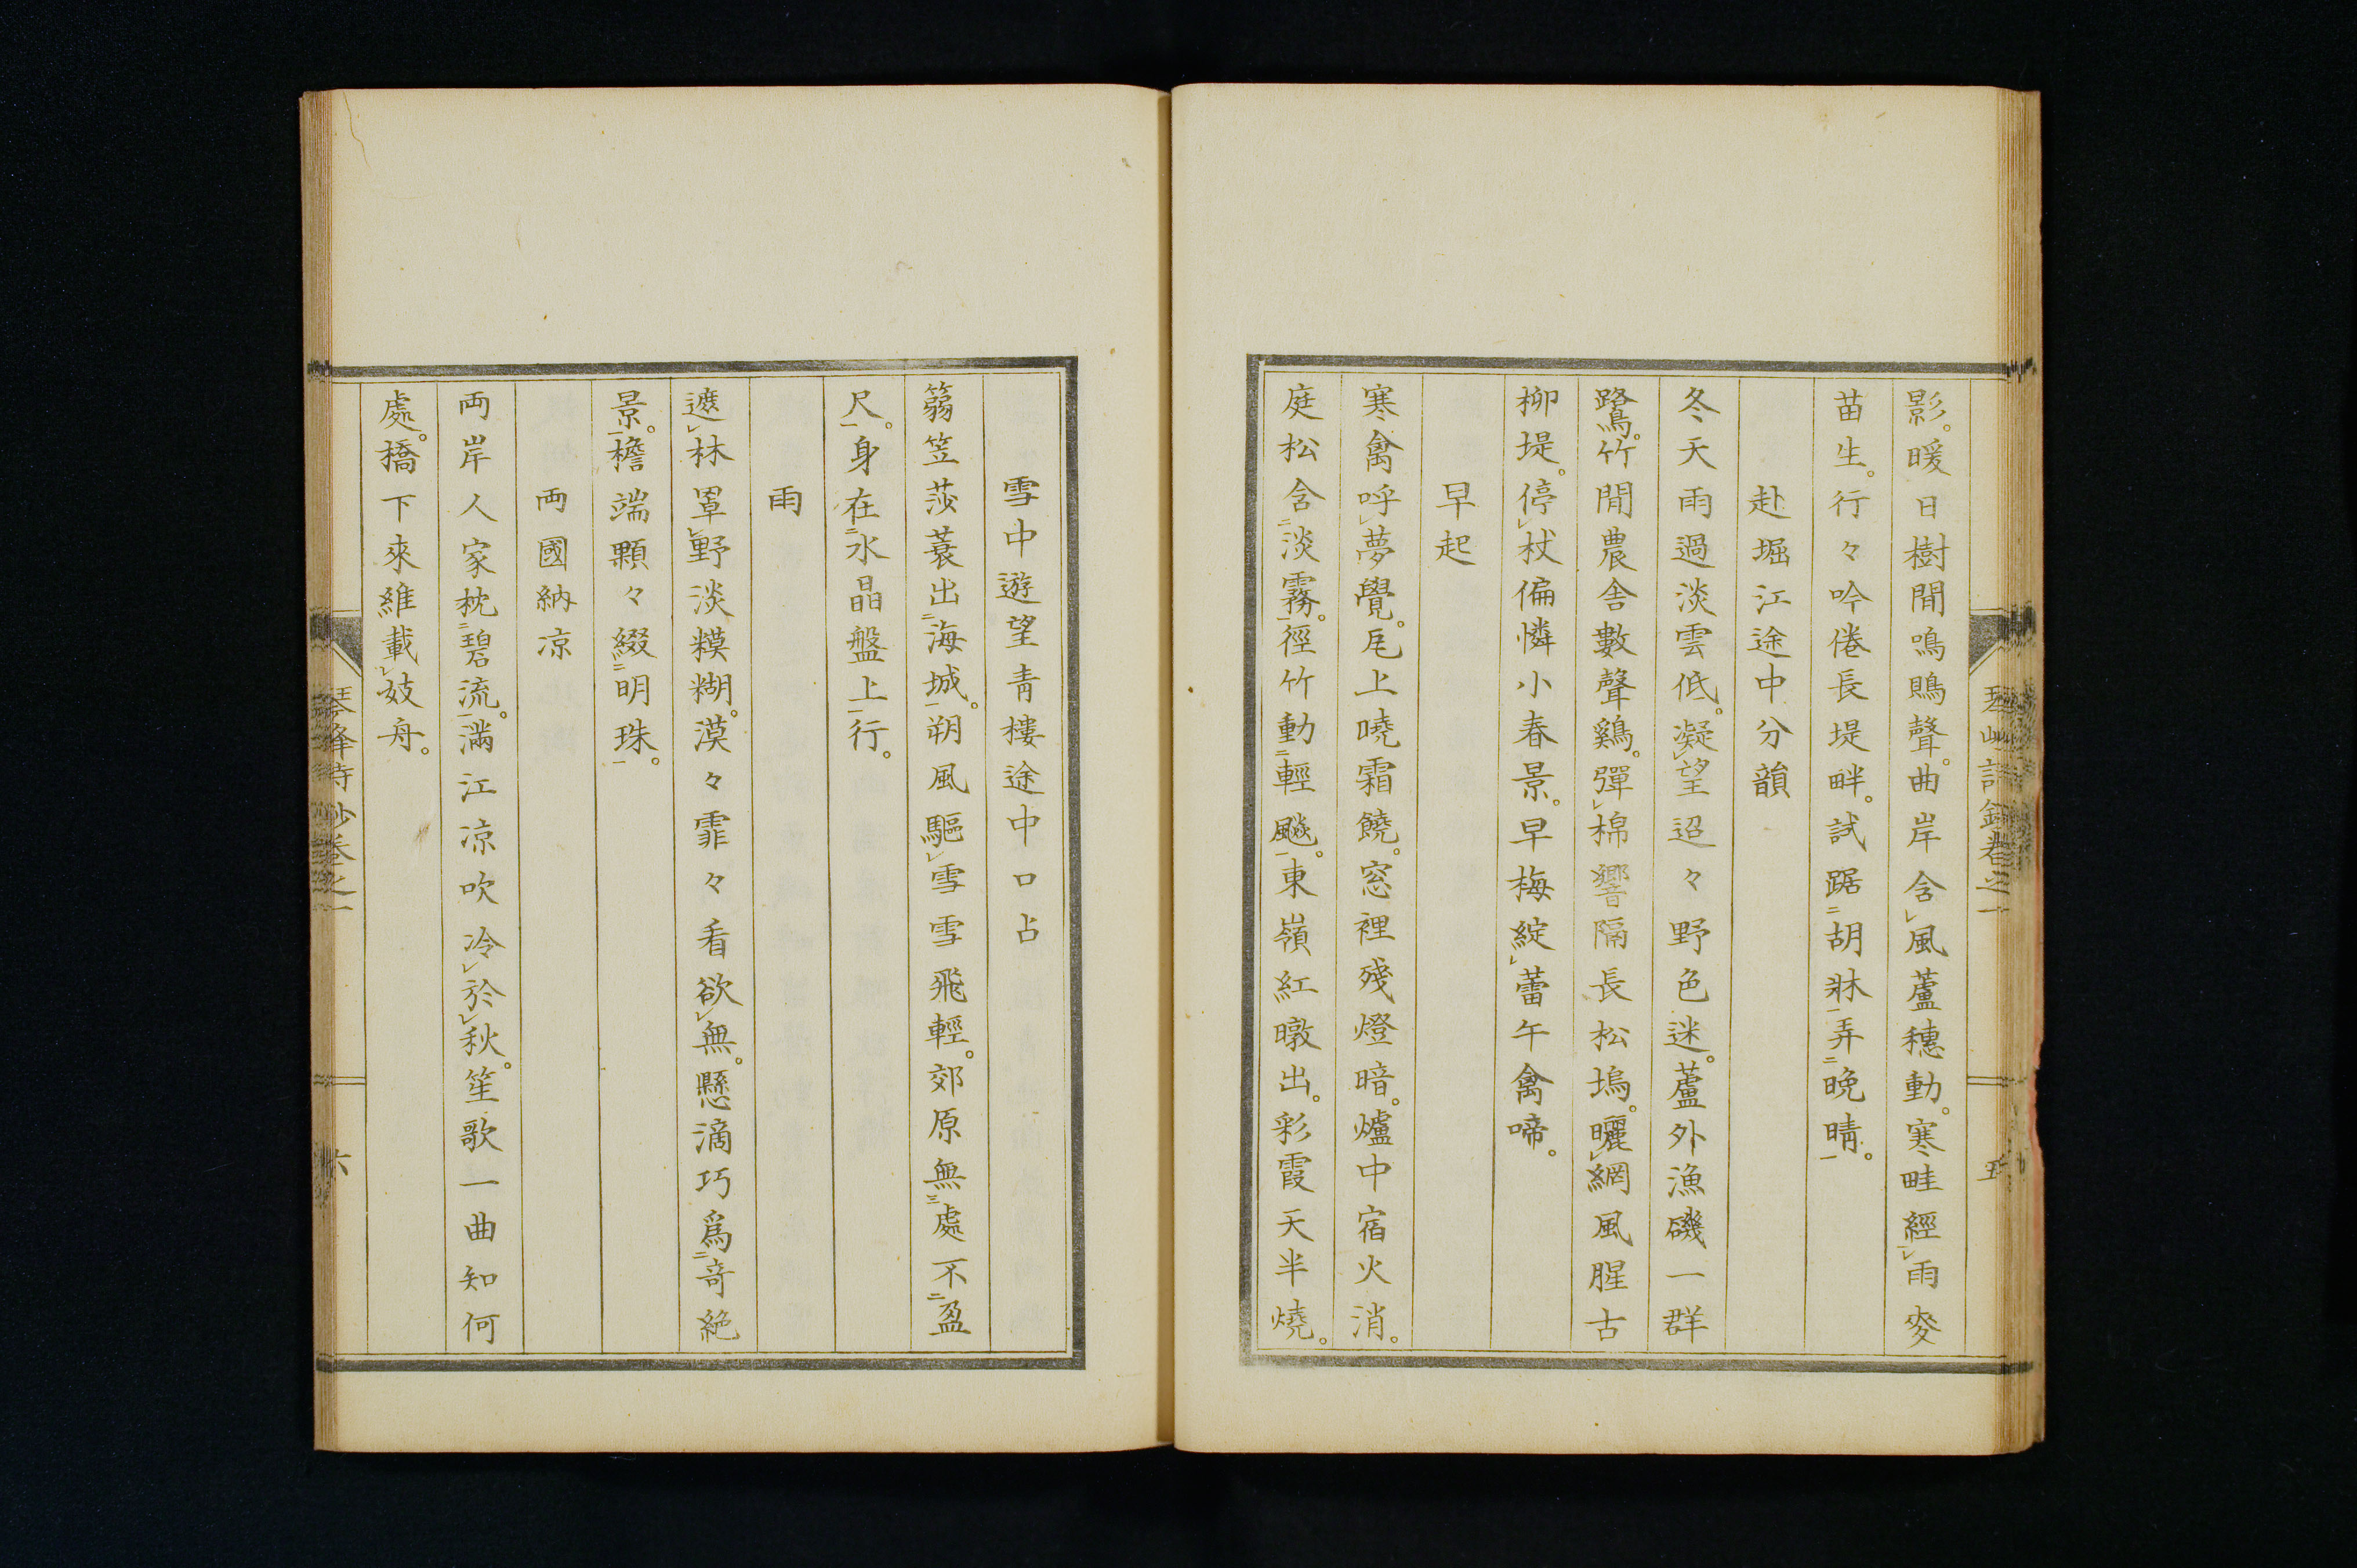 影。暖日樹間鳴鵙聲。曲岸含レ風蘆穗動。寒畦經レ雨麥
苗生。行々吟倦長堤畔。試踞二胡牀一弄二晩晴一。
赴堀江途中分韻
冬天雨過淡雲低。凝レ望迢々野色迷。蘆外漁磯一群
鷺。竹間農舎數聲鷄。彈レ棉響隔長松塢。曬レ網風腥古
柳堤。停レ杖偏憐小春景。早梅綻レ蕾午禽啼。
早起
寒禽呼レ夢覺。瓦上曉霜饒。窓裡殘燈暗。爐中宿火消。
庭松含二淡霧一。徑竹動二輕飈一。東嶺紅暾出。彩霞天半燒。
五
雪中遊望靑樓途中口占
篛笠莎蓑出二海城一。朔風驅レ雪雪飛輕。郊原無三處不二盈
尺一。身在二水晶盤上一行。
雨
遮レ林罩レ野淡糢糊。漠々霏々看欲レ無。懸滴巧爲二奇絶
景一。檐端顆々綴二明珠一。
両國納凉
両岸人家枕二碧流一。滿江凉吹冷レ於レ秋。笙歌一曲知何
處。橋下來維載レ妓舟。
六